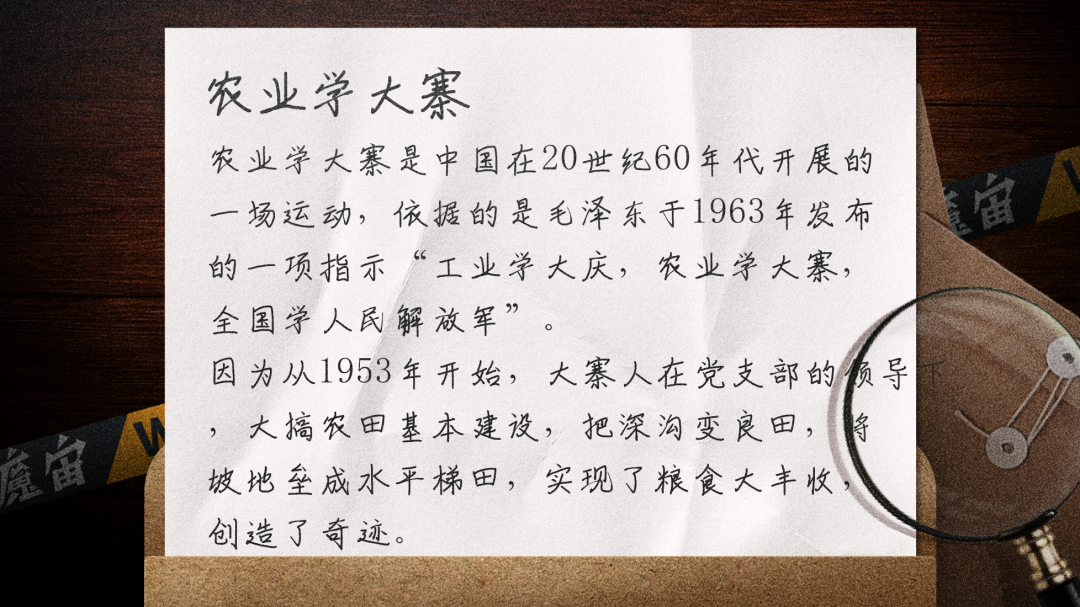 农业学大寨
农业学大寨是中国在20世纪60年代开展的
一场运动，依据的是毛泽东于1963年发布
的一项指示“工业学大庆，农业学大寨，
全国学人民解放军”。
因为从1953年开始，大寨人在党支部的领导下
，大搞农田基本建设，把深沟变良田，将
坡地垒成水平梯田，实现了粮食大丰收，
创造了奇迹。
魔宙
魔宙
W